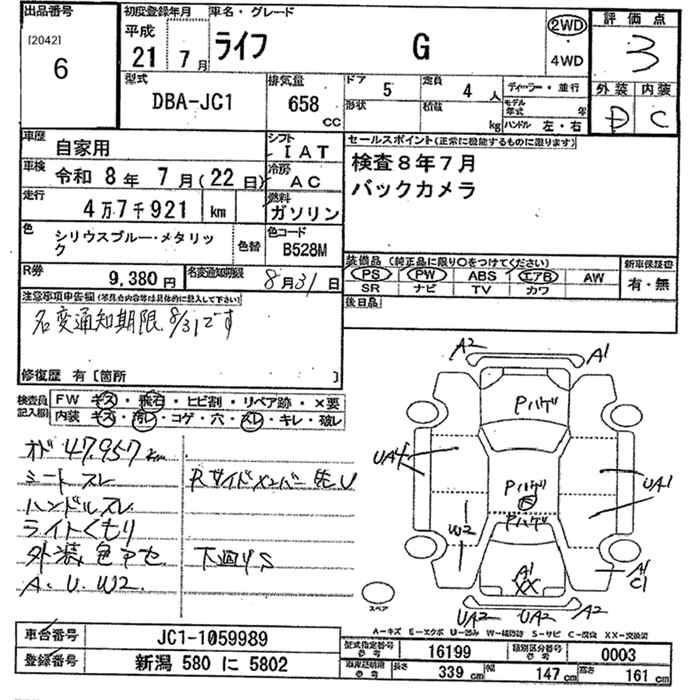 出品番号
[2042]
6
初度登録年月
平成
21 7月
車名・グレード
ライフ G
2WD
・
4WD
評価点
3
外装 内装
D C
型式
DBA-JC1
排気量
658 cc
ドア 5
形状
定員 4 人
積載 kg
ディーラー・並行
モデル年式 年
ハンドル 左・右
車歴 自家用
シフト IAT
車検 令和 8年 7月(22日)
冷房 AC
走行 4万7千921 km
燃料 ガソリン
色 シリウスブルー・メタリック
色替
色コード B528M
R券 9,380円
名変通知期限 8月31日
セールスポイント(正常に機能するものに限ります)
検査8年7月
バックカメラ
装備品(純正品に限り○をつけてください)
PS PW ABS エアB AW
SR ナビ TV カワ
新車保証書
有・無
後日品
注意事項申告欄(不具合内容等は具体的に記入して下さい)
名変通知期限8/31です
修復歴 有〔箇所 〕
検査員記入欄
FW キズ・飛石・ヒビ割・リペア跡・×要
内装 キズ・汚レ・コゲ・穴・スレ・キレ・破レ
オド 47,957km
シートスレ
ハンドルスレ
ライトくもり
外装色アセ
A.U.W2.
Rサイドメンバー先U
下廻りS
A2 A1
Pハゲ
UA4 UA1
Pハゲ
Pハゲ
W2
A1
C1
A1
XX
UA2 UA2 A2
スペア
A-キズ E-エクボ U-凹み W-補修跡 S-サビ C-腐食 XX-交換済
車台番号 JC1-1059989
登録番号 新潟 580 に 5802
型式指定番号 参考 16199
類別区分番号 参考 0003
車庫証明用 参考
長さ 339 cm
幅 147 cm
高さ 161 cm